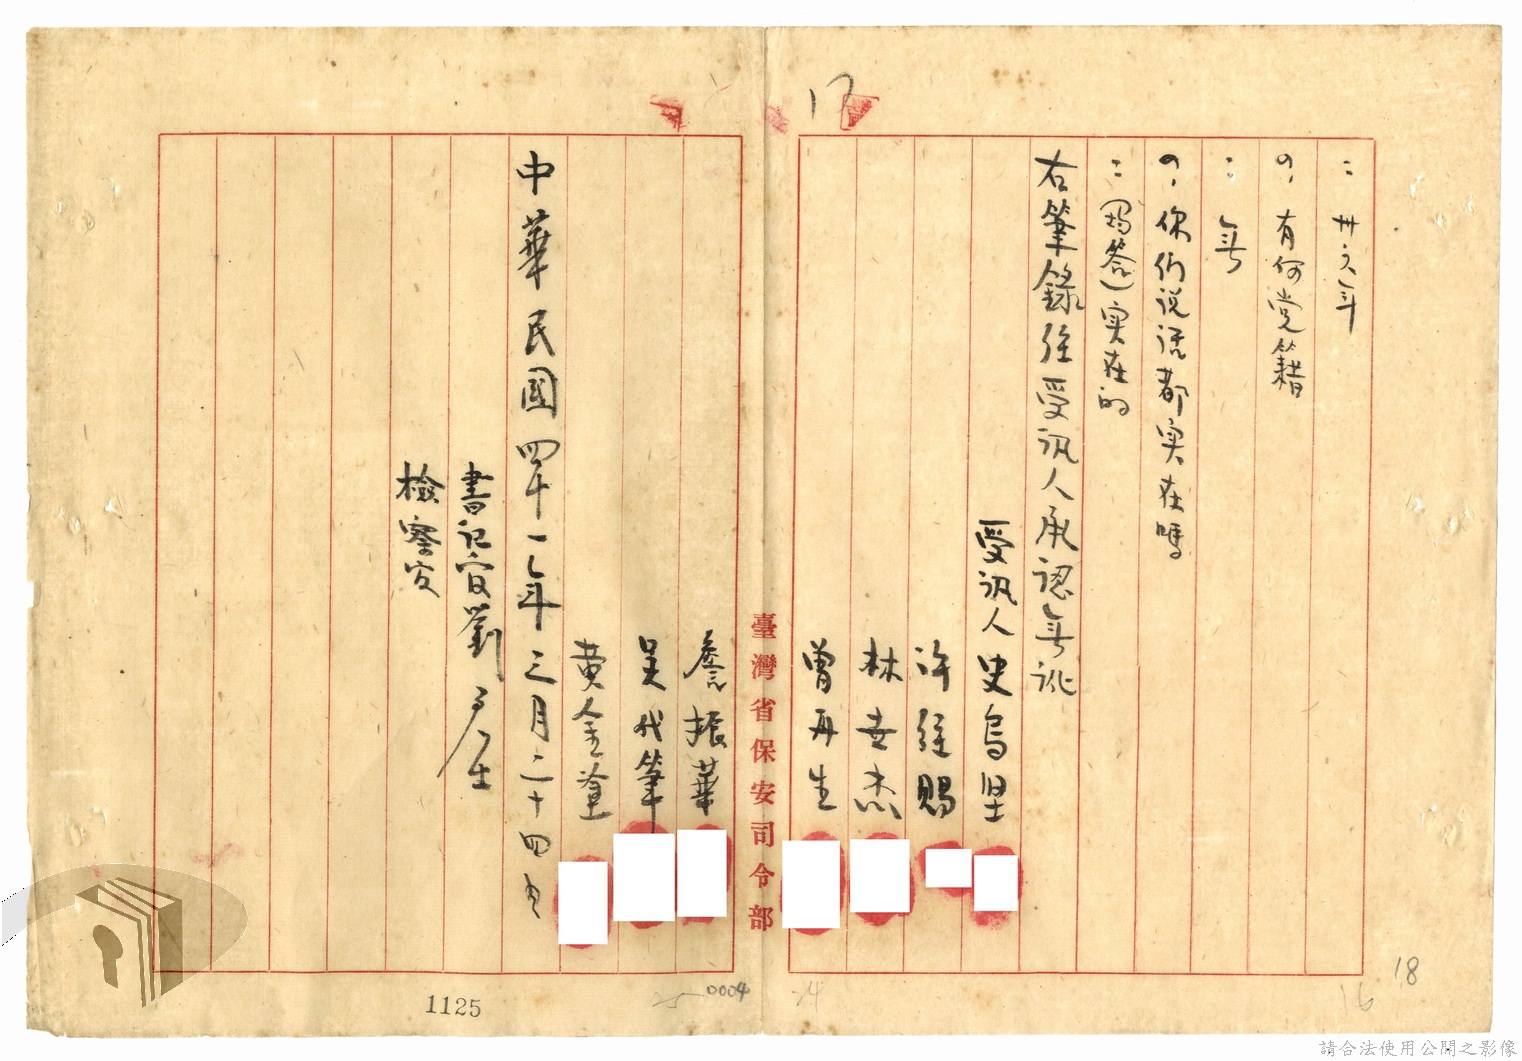 17
：卅六年
？有何党籍
：無
？你们说话都实在嗎
：（均答）实在的
右筆錄経受訊人承認無訛
受訊人史烏坚
许経賜
林世杰
曾再生
臺灣省保安司令部
詹振華
吴代筆
黄金塗
中華民國四十一年三月二十四日
書记官劉
檢察官
18
16
24
25
0004
1125
請合法使用公開之影像